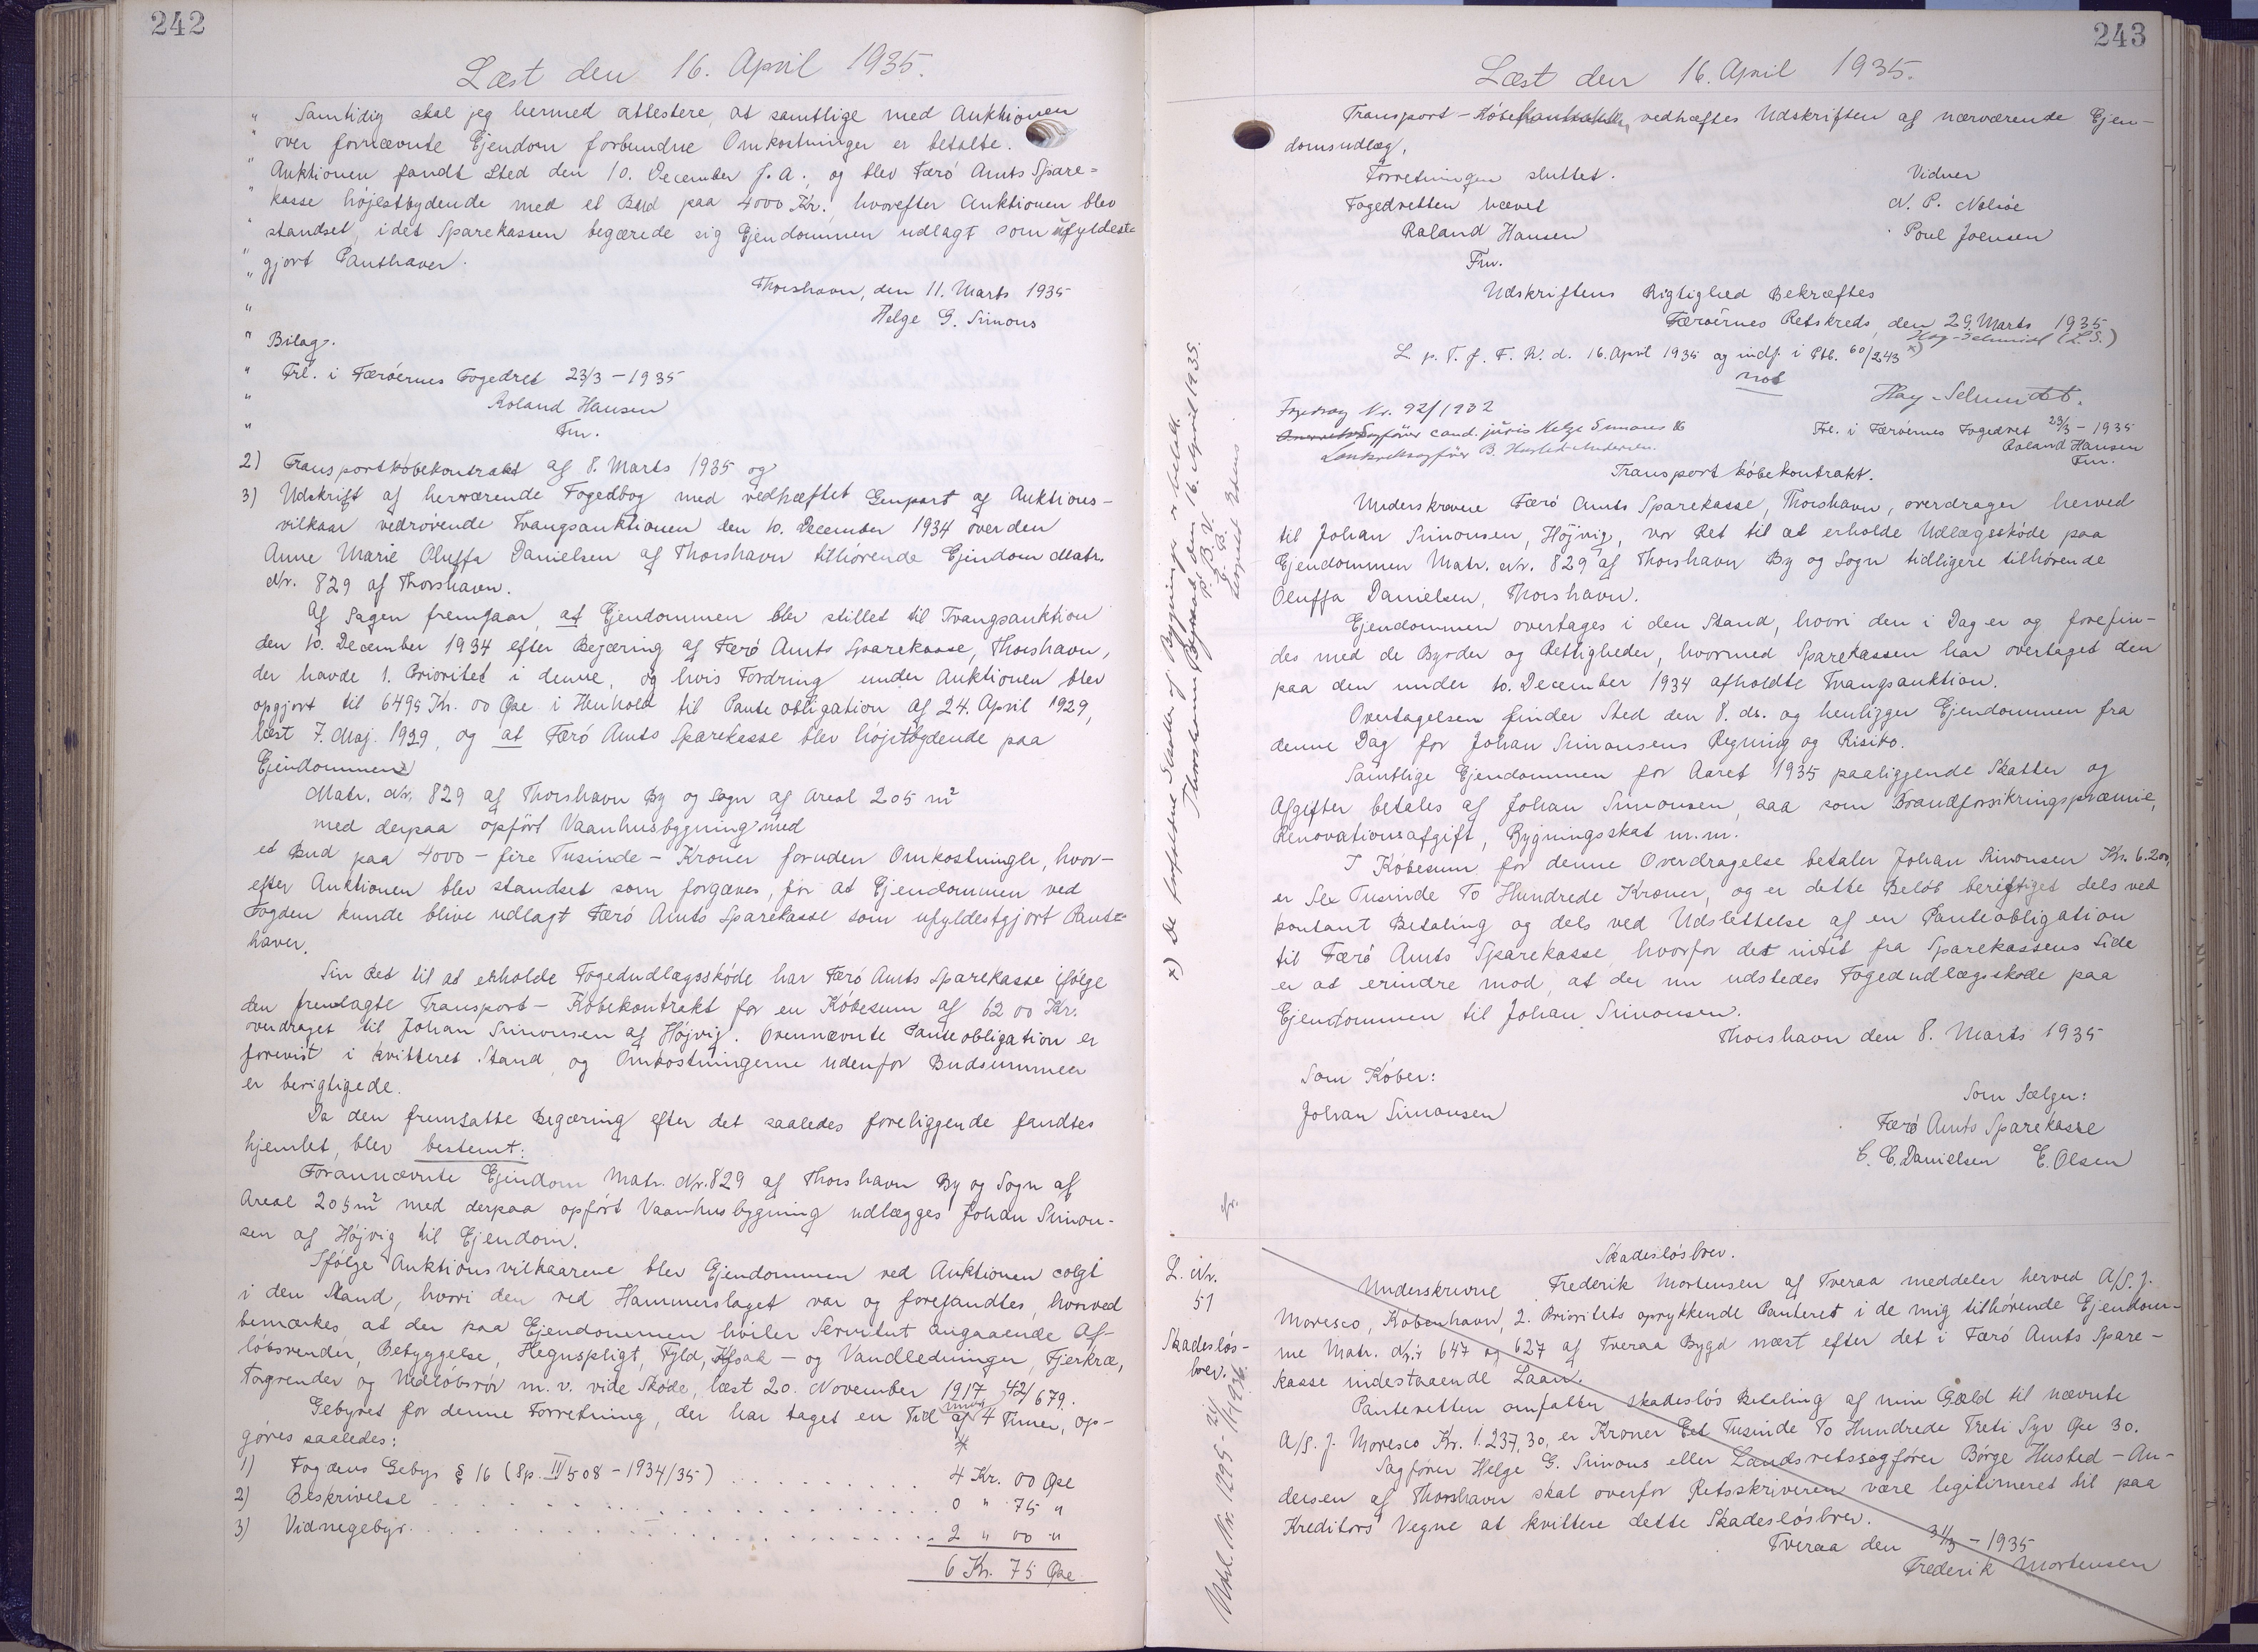 242
Læst den 16. April 1935.
" Samtidig skal jeg hermed attestere, at samtlige med Auktionen
" over fornævnte Ejendom forbundne Omkostninger er betalte.
" Auktionen fandt Sted den 10. December f. A., og blev Færö Amts Spare=
" kasse höjestbydende med et Bud paa 4000 Kr., hvorefter Auktionen blev
" standset, idet Sparekassen begærede sig Ejendommen udlagt som ufyldest=
" gjort Panthaver.
" Thorshavn, den 11. Marts 1935
" Helge G. Simons
" Bilag.
" Frl. i Færöernes Fogedret 23/3 - 1935
" Roland Hansen
" Fm.
2) Transportköbekontrakt af 8. Marts 1935 og
3) Udskrift af herværende Fogedbog med vedhæftet Genpart af Auktions-
vilkaar vedrörende Tvangsauktionen den 10. December 1934 over den
Anne Marie Oluffa Danielsen af Thorshavn tilhörende Ejendom Matr.
Nr. 829 af Thorshavn.
Af Sagen fremgaar, at Ejendommen blev stillet til Tvangsauktion
den 10. December 1934 efter Begæring af Færö Amts Sparekasse, Thorshavn,
der havde 1. Prioritet i denne, og hvis Fordring under Auktionen blev
opgjort til 6495 Kr. 00 Øre i Henhold til Pante obligation af 24. April 1929,
læst 7. Maj. 1929, og at Færö Amts Sparekasse blev höjstbydende paa
Ejendommen
Matr. Nr. 829 af Thorshavn By og Sogn af Areal 205 m²
med derpaa opfört Vaanhusbygning med
et Bud paa 4000 - fire Tusinde - Kroner foruden Omkostninger, hvor-
efter Auktionen blev standset som forgæves, for at Ejendommen ved
Fogden kunde blive udlagt Færö Amts Sparekasse som ufyldestgjort Pant=
haver.
Sin Ret til at erholde Fogedudlægsskøde har Færö Amts Sparekasse ifölge
den fremlagte Transport - Köbekontrakt for en Köbesum af 6200 Kr.
overdraget til Johan Simonsen af Höjvig. Ovennævnte Panteobligation er
forevist i kvitteret Stand, og Omkostningerne udenfor Budsummen
er berigtigede.
Da den fremsatte Begæring efter det saaledes foreliggende fandtes
hjemlet, blev bestemt:
Forannævnte Ejendom Matr. Nr. 829 af Thorshavn By og Sogn af
Areal 205 m² med derpaa opfört Vaanhusbygning udlægges Johan Simon-
sen af Höjvig til Ejendom.
Ifölge Auktionsvilkaarene blev Ejendommen ved Auktionen solgt
i den Stand, hvori den ved Hammerslaget var og forefandtes, hvorved
bemærkes at der paa Ejendommen hviler Servitut angaaende Af-
löbsrender, Bebyggelse, Hegnspligt, Fyld, Kloak - og Vandledninger, Fjerkræ,
Tagrender og Nedlöbsrör m. v. vide Sköde, læst 20. November 1917 42/679.
Gebyret for denne Forretning, der har taget en Tid under 4 Timer, op-
göres saaledes:
1) Fogdens Gebyr § 16 (Sp. III 508 - 1934/35) . . . . . . 4 Kr. 00 Øre
2) Beskrivelse . . . . . . 0 " 75 "
3) Vidnegebyr . . . . . . 2 " 00 "
6 Kr. 75 Øre
243
Læst den 16. April 1935.
Transport - Köbekontrakten vedhæftes Udskriften af nærværende Ejen-
domsudlæg.
Forretningen sluttet. Vidner
Fogedretten hævet N. P. Nolsöe
Roland Hansen Poul Joensen
Fm.
Udskriftens Rigtighed Bekræftes
Færöernes Retskreds, den 29. Marts 1935
Hay-Schmidt (L.S.)
L. p. T. f. F. R. d. 16. April 1935 og indf. i Ptb. 60/243 x)
not
Hay-Schmidt.
Fogedsag Nr. 92/1932
cand. juris Helge Simons
Landsretssagförer B. Husted-Andersen.
Frl. i Færöernes Fogedret 23/3 - 1935
Roland Hansen
Fm.
Transport köbekontrakt.
Underskrevne Færö Amts Sparekasse, Thorshavn, overdrager herved
til Johan Simonsen, Höjvig, vor Ret til at erholde Udlægsskóde paa
Ejendommen Matr. Nr. 829 af Thorshavn By og Sogn tidligere tilhørende
Oluffa Danielsen, Thorshavn.
Ejendommen overtages i den Stand, hvori den i Dag er og forefin-
des med de Byrder og Rettigheder, hvormed Sparekassen har overtaget den
paa den under 10. December 1934 afholdte Tvangsauktion.
Overtagelsen finder Sted den 8. ds. og henligger Ejendommen fra
denne Dag for Johan Simonsens Regning og Risiko.
Samtlige Ejendommen for Aaret 1935 paaliggende Skatter og
Afgifter betales af Johan Simonsen, saa som Brandforsikringspræmie,
Renovationsafgift, Bygningsskat m.m.
I Köbesum for denne Overdragelse betaler Johan Simonsen Kr. 6.200,
er Sex Tusinde To Hundrede Kroner, og er dette Belöb berigtiget dels ved
kontant Betaling og dels ved Udslettelse af en Panteobligation
til Færö Amts Sparekasse, hvorfor det intet fra Sparekassens Side
er at erindre mod, at der nu udstedes Fogedudlægsskøde paa
Ejendommen til Johan Simonsen.
Thorshavn den 8. Marts 1935
Som Köber:
Johan Simonsen
Som Sælger:
Færö Amts Sparekasse
C. C. Danielsen E. Olsen
x) De forfaldne Skatter af Bygninger er betalt.
Thorshavn Byfoged, den 16. April 1935.
P. B. V.
L. Nr.
51
Skadeslös-
brev.
Skadeslösbrev.
Underskrevne Frederik Mortensen af Tveraa meddeler herved A/S. J.
Moresco, København, 2. Prioritets oprykkende Panteret i de mig tilhörende Ejendom-
me Matr. Nr. 647 og 627 af Tveraa Bygd næst efter det i Færö Amts Spare-
kasse indestaaende Laan.
Panteretten omfatter skadeslös Betaling af min Gæld til nævnte
A/S. J. Moresco Kr. 1.237,30, er Kroner Eet Tusinde To Hundrede Treti Syv Øre 30.
Sagförer Helge G. Simons eller Landsretssagförer Börge Husted - An-
dersen af Thorshavn skal overfor Retsskriveren være legitimeret til paa
Kreditors Vegne at kvittere dette Skadeslösbrev.
Tveraa den 31/3 - 1935
Frederik Mortensen